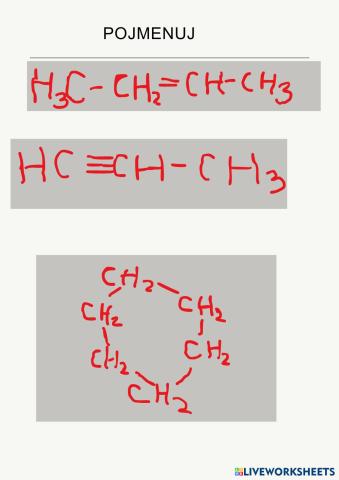 POJMENUJ
H₃C - CH₂ = CH - CH₃
HC ≡ CH - CH₃
CH₂
CH₂ CH₂
CH₂ CH₂
CH₂
LIVEWORKSHEETS